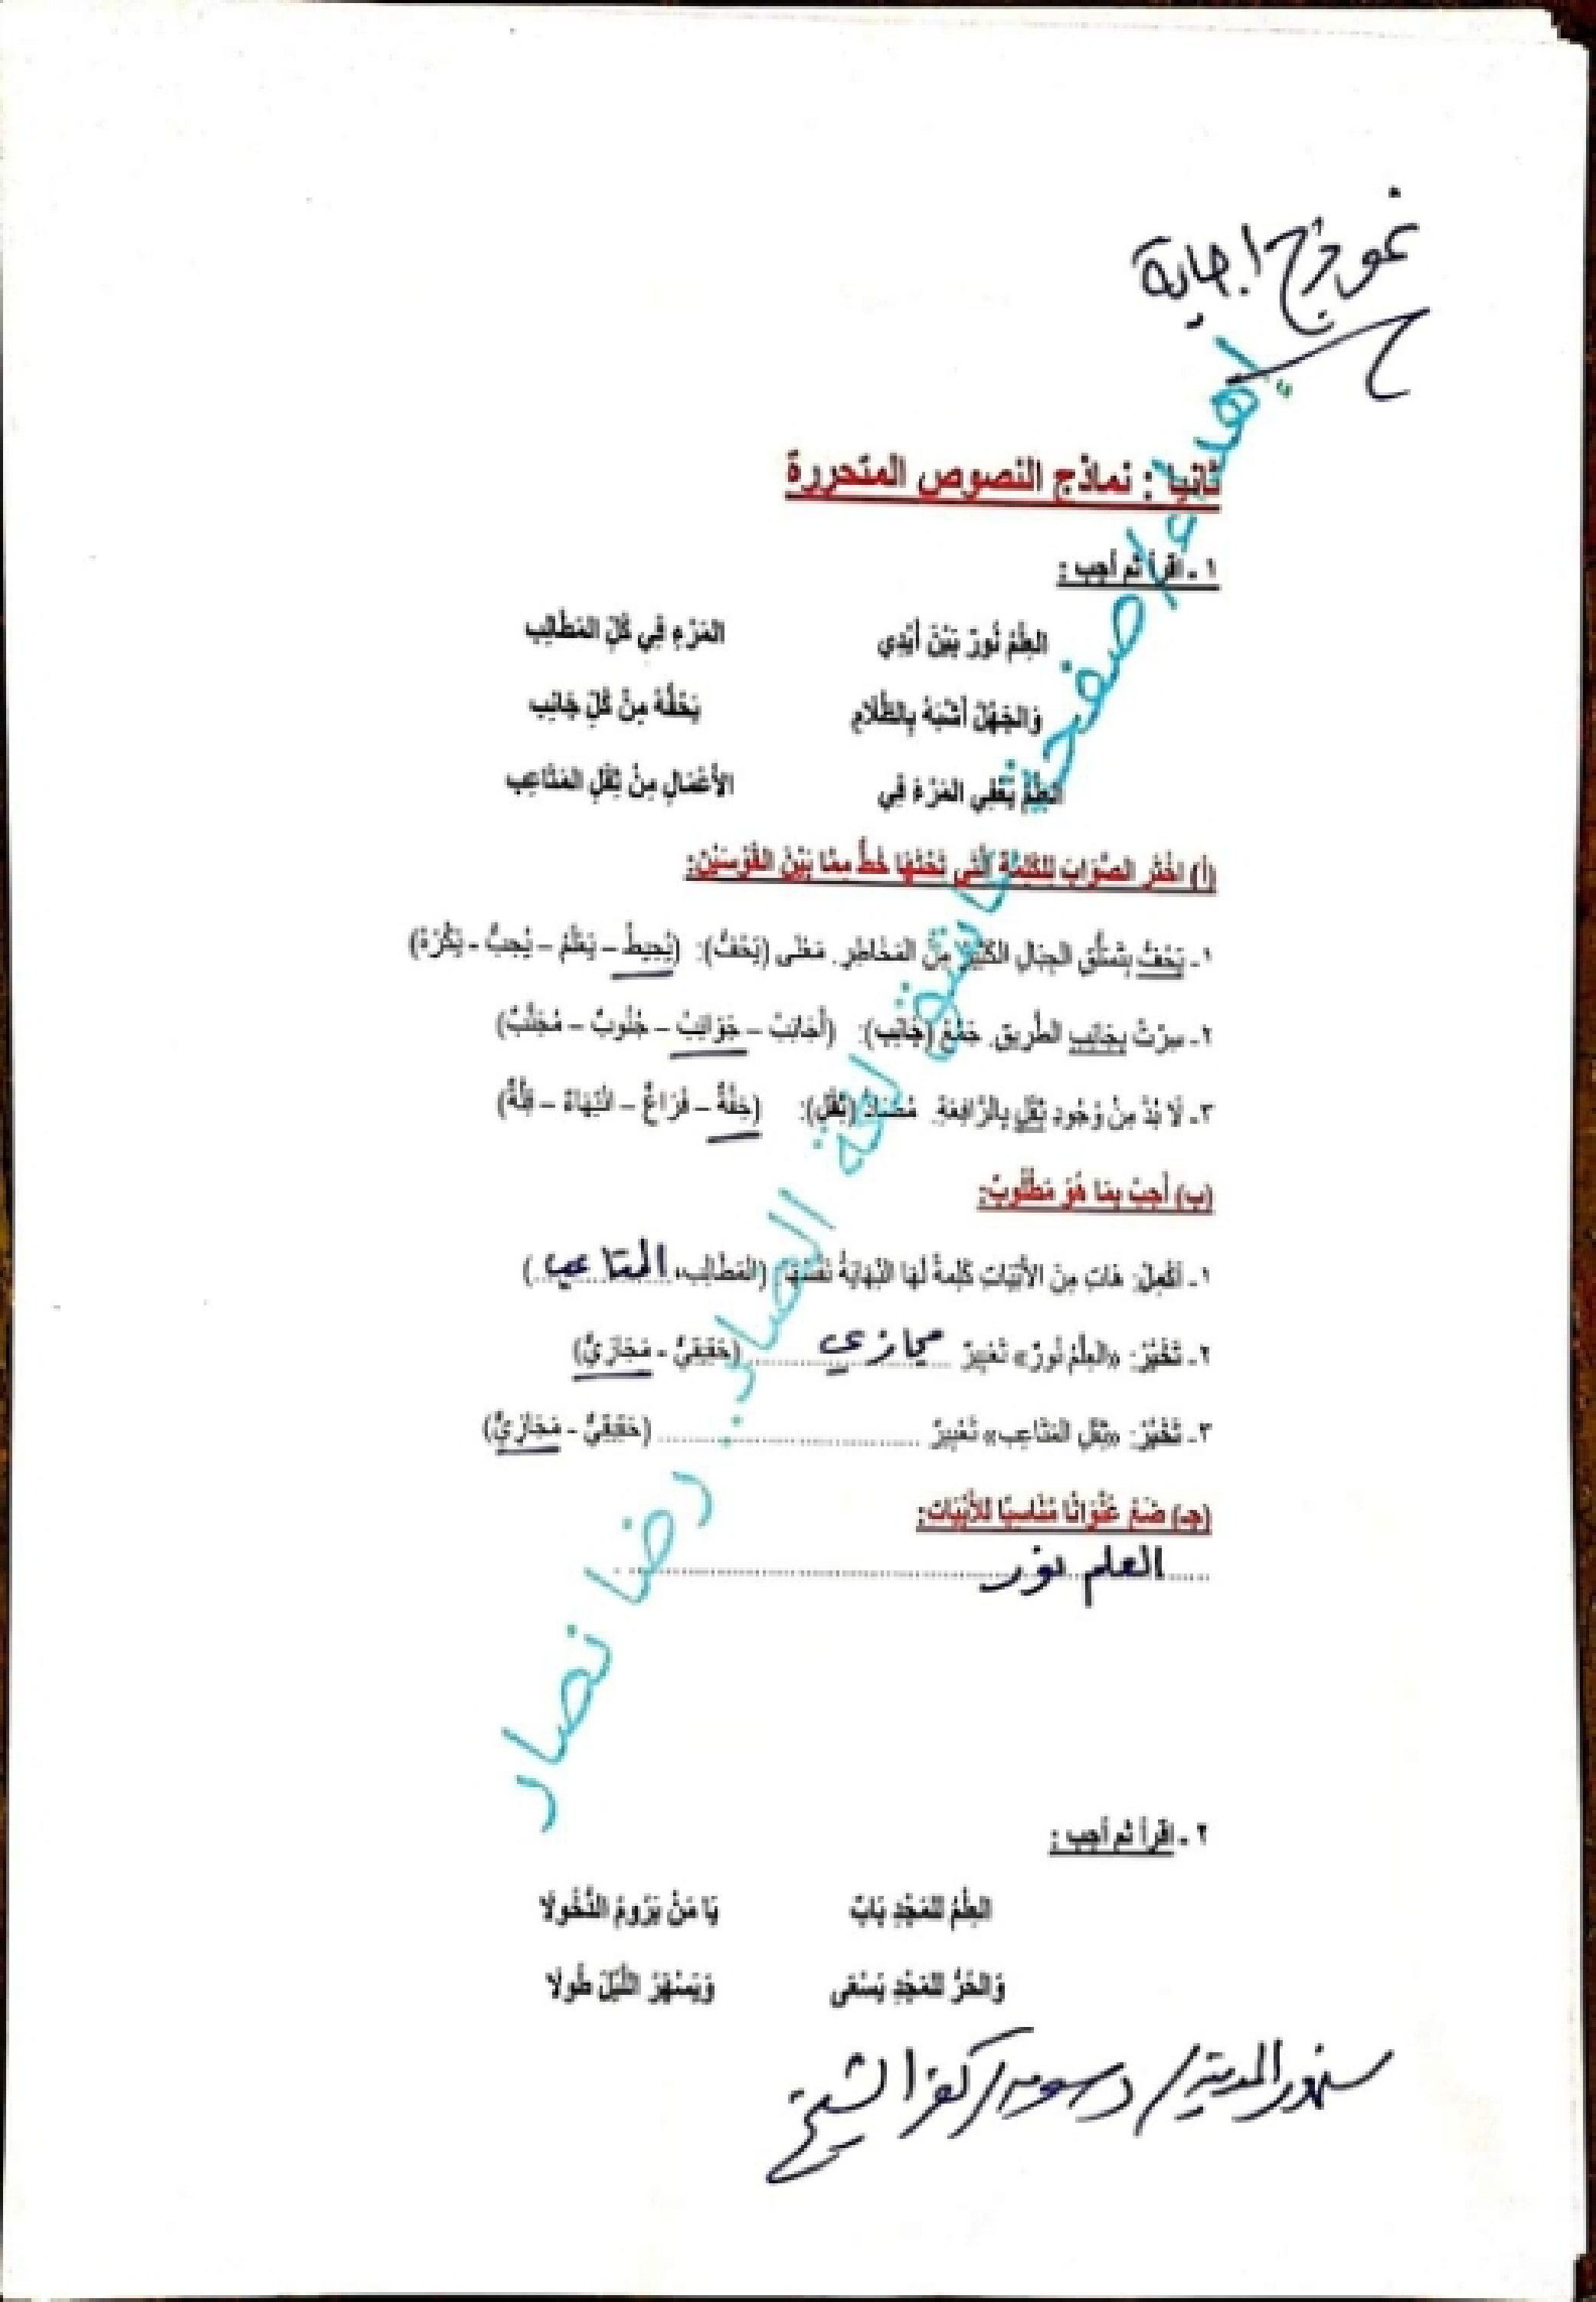 نموذج إجابة
ح
ثانيا : نماذج النصوص المتحررة
١ - اقرأ ثم أجب :
العِلْمُ نُورٌ بَيْنَ أَيْدِي المَرْءِ فِي كُلِّ المَطَالِبِ
وَالجَهْلُ أَشْبَهُ بِالظَّلَامِ يَحُفُّهُ مِنْ كُلِّ جَانِبِ
العِلْمُ يُعْفِي المَرْءَ فِي الأَعْمَالِ مِنْ ثِقَلِ المَتَاعِبِ
(أ) اخْتَرِ الصَّوَابَ لِلْكَلِمَةِ الَّتِي تَحْتَهَا خَطٌّ مِمَّا بَيْنَ القَوْسَيْنِ:
١- يَحُفُّ بِتَسَلُّقِ الجِبَالِ الكَثِيرُ مِنَ المَخَاطِرِ. مَعْنَى (يَحُفُّ): (يُحِيطُ – يَعْلَمُ – يُحِبُّ - يَكْرَهُ)
٢- سِرْتُ بِجَانِبِ الطَّرِيقِ. جَمْعُ (جَانِبِ): (أَجَانِبُ – جَوَانِبُ – جُنُوبٌ – مُجَنَّبٌ)
٣- لَا بُدَّ مِنْ وُجُودِ ثِقَلٍ بِالرَّافِعَةِ. مُضَادُّ (ثِقَلٍ): (خِفَّةٌ – فَرَاغٌ – انْتِهَاءٌ – قِلَّةٌ)
(ب) أَجِبْ بِمَا هُوَ مَطْلُوبٌ:
١- أَكْمِلْ: هَاتِ مِنَ الأَبْيَاتِ كَلِمَةً لَهَا النِّهَايَةُ نَفْسُهَا: (المَطَالِبِ، المتاعب)
٢- تَخَيَّرْ: «العِلْمُ نُورٌ» تَعْبِيرٌ مجازي (حَقِيقِيٌّ - مَجَازِيٌّ)
٣- تَخَيَّرْ: «ثِقَلِ المَتَاعِبِ» تَعْبِيرٌ (حَقِيقِيٌّ - مَجَازِيٌّ)
(جـ) ضَعْ عُنْوَانًا مُنَاسِبًا لِلأَبْيَاتِ:
العلم نور
إهداء / صفحة عاشق لغة الضاد. رضا نصار
٢ - اقرأ ثم أجب :
العِلْمُ لِلمَجْدِ بَابٌ يَا مَنْ يَرُومُ الدُّخُولَا
وَالحُرُّ لِلمَجْدِ يَسْعَى وَيَسْهَرُ اللَّيْلَ طُولَا
سنهور المدينة / دسوق / كفر الشيخ